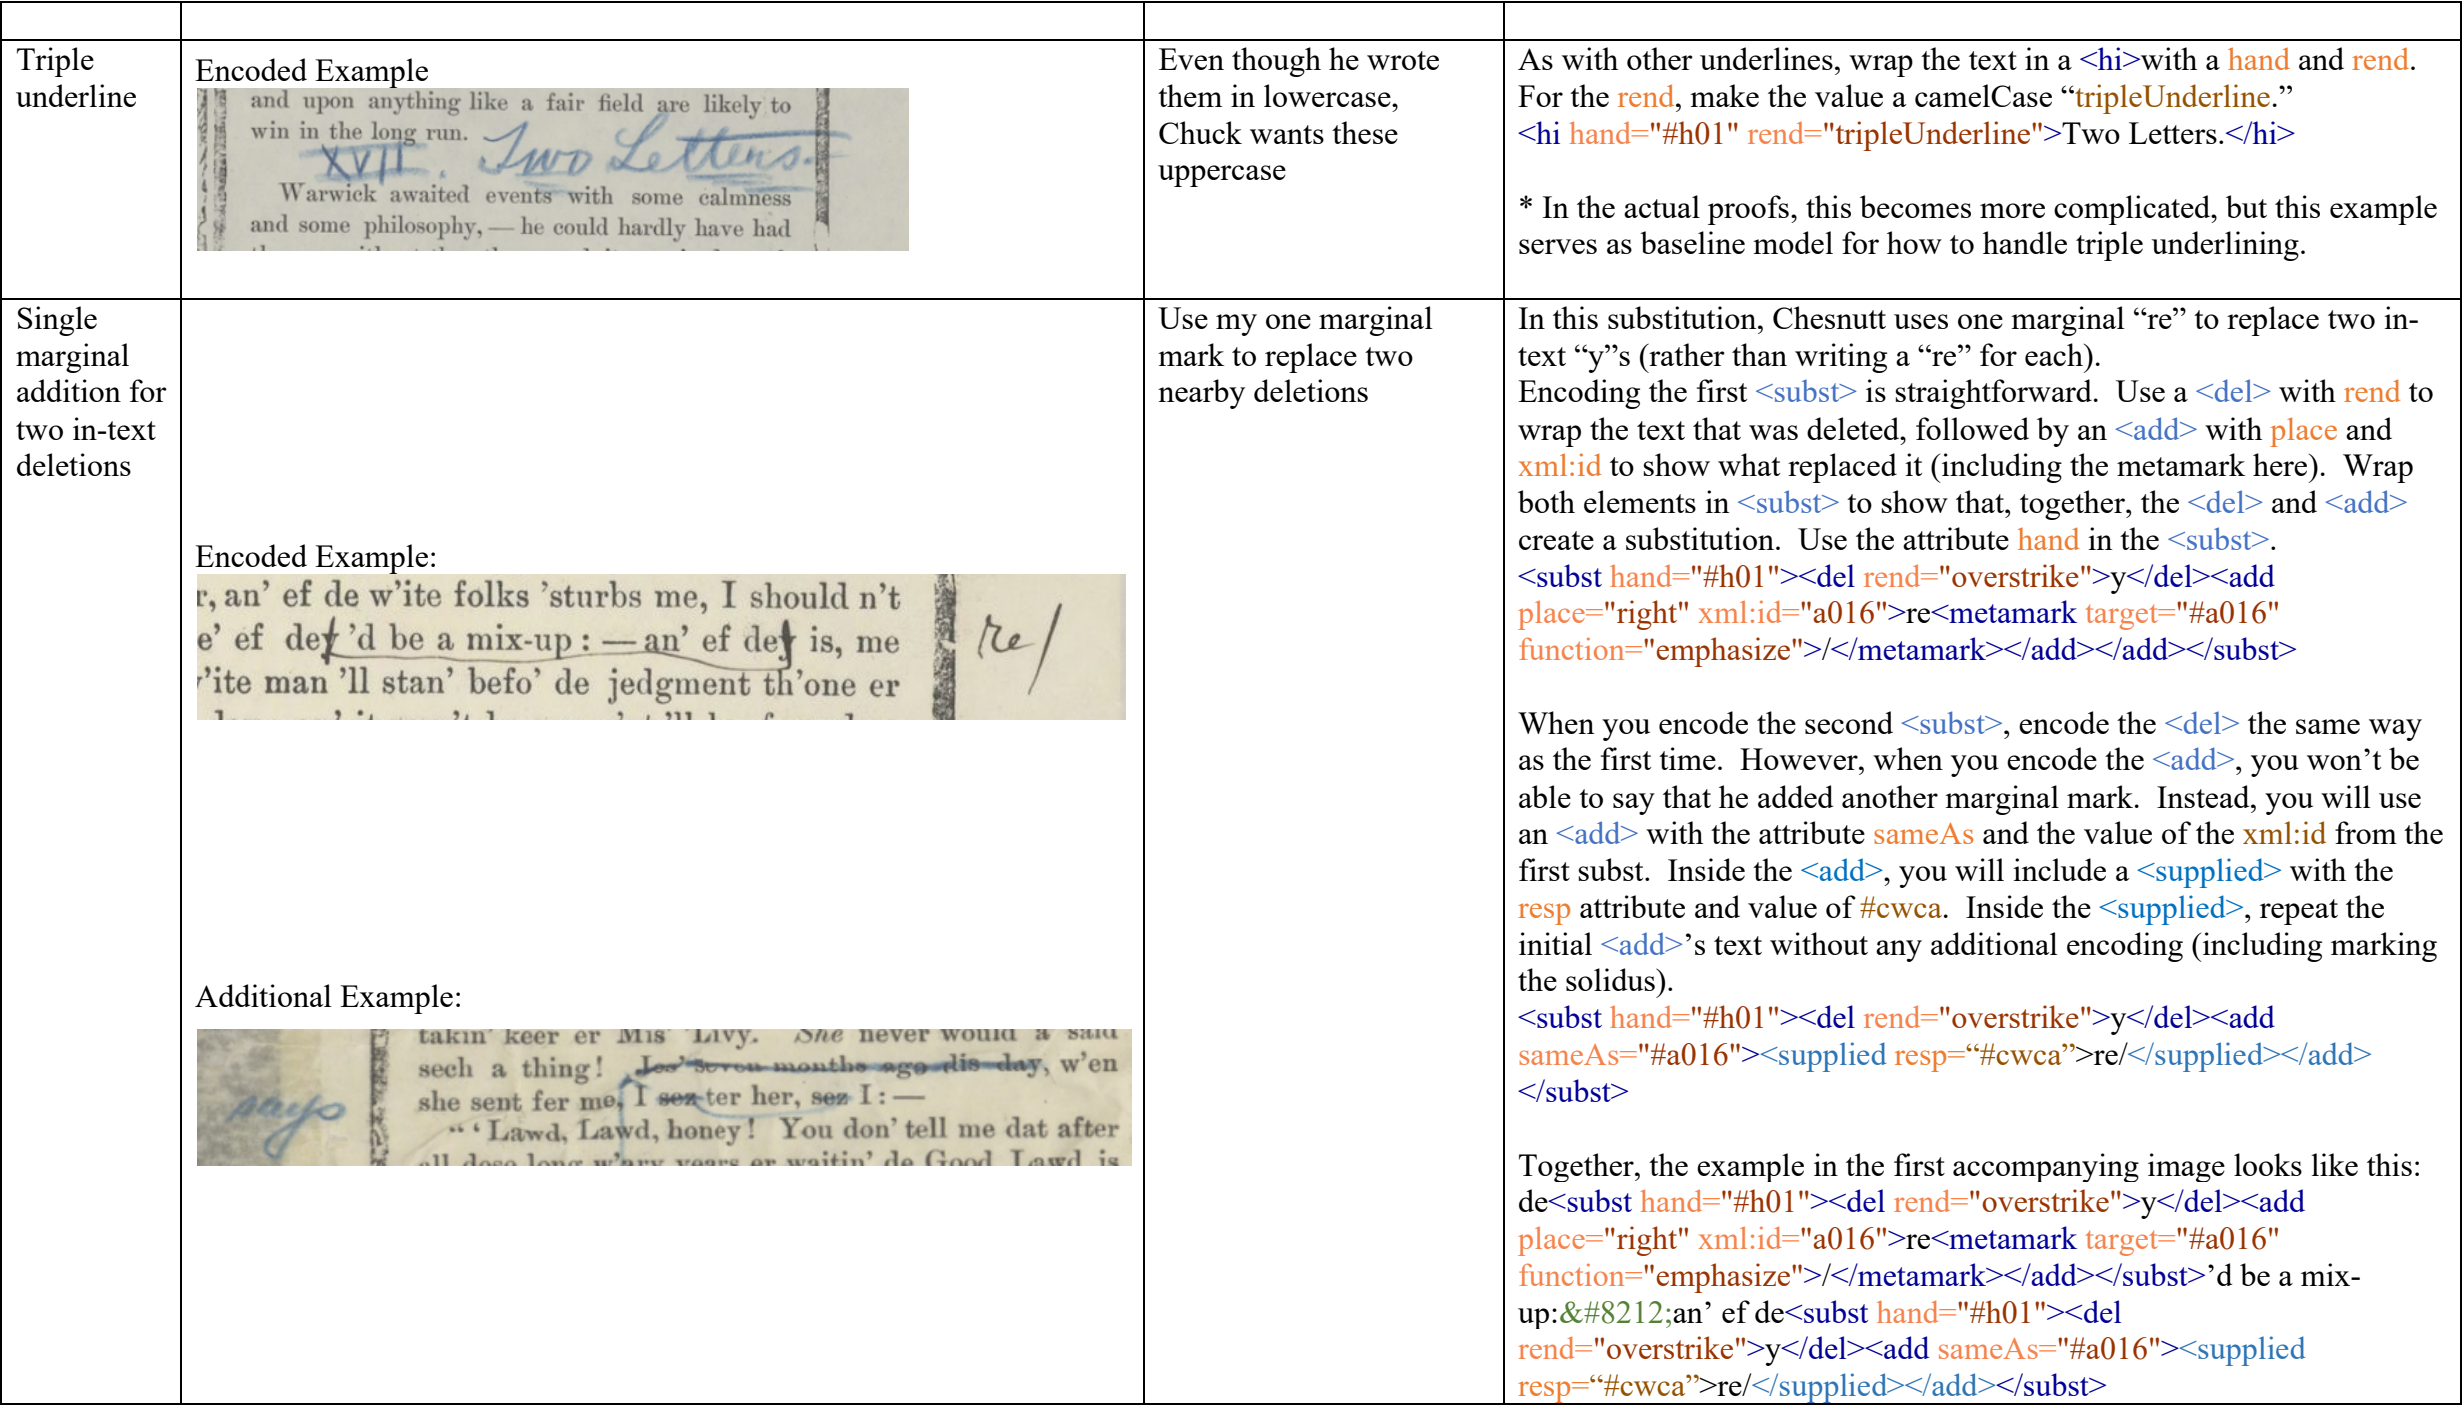 Triple
underline
Encoded Example
and upon anything like a fair field are likely to
win in the long run.
XVII. Two Letters.
Warwick awaited events with some calmness
and some philosophy, — he could hardly have had
Even though he wrote
them in lowercase,
Chuck wants these
uppercase
As with other underlines, wrap the text in a <hi>with a hand and rend.
For the rend, make the value a camelCase “tripleUnderline.”
<hi hand="#h01" rend="tripleUnderline">Two Letters.</hi>
* In the actual proofs, this becomes more complicated, but this example
serves as baseline model for how to handle triple underlining.
Single
marginal
addition for
two in-text
deletions
Encoded Example:
r, an’ ef de w’ite folks ’sturbs me, I should n’t
e’ ef dey ’d be a mix-up : — an’ ef dey is, me
re/
’ite man ’ll stan’ befo’ de jedgment th’one er
Additional Example:
takin’ keer er Mis’ ’Livy. She never would a said
sech a thing! Jes’ seven months ago dis day, w’en
she sent fer me, I sez ter her, sez I : —
says
“ ‘ Lawd, Lawd, honey! You don’ tell me dat after
all dese long w’ary years er waitin’ de Good Lawd is
Use my one marginal
mark to replace two
nearby deletions
In this substitution, Chesnutt uses one marginal “re” to replace two in-
text “y”s (rather than writing a “re” for each).
Encoding the first <subst> is straightforward.  Use a <del> with rend to
wrap the text that was deleted, followed by an <add> with place and
xml:id to show what replaced it (including the metamark here).  Wrap
both elements in <subst> to show that, together, the <del> and <add>
create a substitution.  Use the attribute hand in the <subst>.
<subst hand="#h01"><del rend="overstrike">y</del><add
place="right" xml:id="a016">re<metamark target="#a016"
function="emphasize">/</metamark></add></add></subst>
When you encode the second <subst>, encode the <del> the same way
as the first time.  However, when you encode the <add>, you won’t be
able to say that he added another marginal mark.  Instead, you will use
an <add> with the attribute sameAs and the value of the xml:id from the
first subst.  Inside the <add>, you will include a <supplied> with the
resp attribute and value of #cwca.  Inside the <supplied>, repeat the
initial <add>’s text without any additional encoding (including marking
the solidus).
<subst hand="#h01"><del rend="overstrike">y</del><add
sameAs="#a016"><supplied resp=“#cwca”>re/</supplied></add>
</subst>
Together, the example in the first accompanying image looks like this:
de<subst hand="#h01"><del rend="overstrike">y</del><add
place="right" xml:id="a016">re<metamark target="#a016"
function="emphasize">/</metamark></add></subst>’d be a mix-
up:&#8212;an’ ef de<subst hand="#h01"><del
rend="overstrike">y</del><add sameAs="#a016"><supplied
resp=“#cwca”>re/</supplied></add></subst>